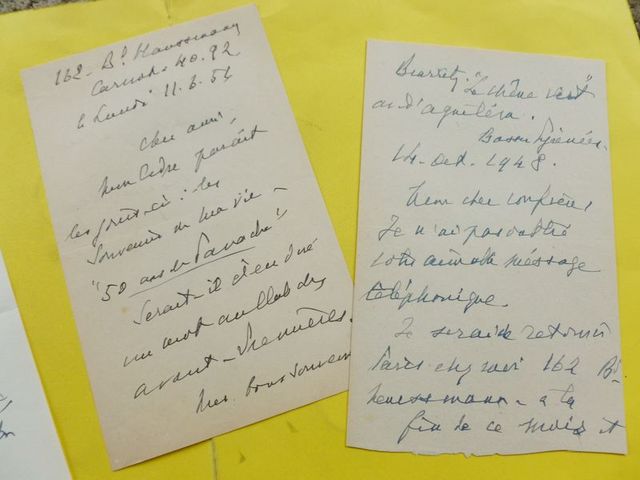 162 - Bd Haussmann
Carnot 40.92
le Lundi 11.6.51
Cher ami,
paraît
les jours-ci : les
Souvenirs de ma vie -
"50 ans de Panache"
Serait-il
un mot au Club des
avant-Premières.
Biarritz "Le chêne vert"
av. d'aguiléra.
Basses Pyrénées.
14. Oct. 1948.
Mon cher confrère,
Je n'ai pas oublié
votre aimable méssage
téléphonique.
Je serai de retour à
Paris chez moi 162 Bd
haussmann - à la
fin de ce mois et